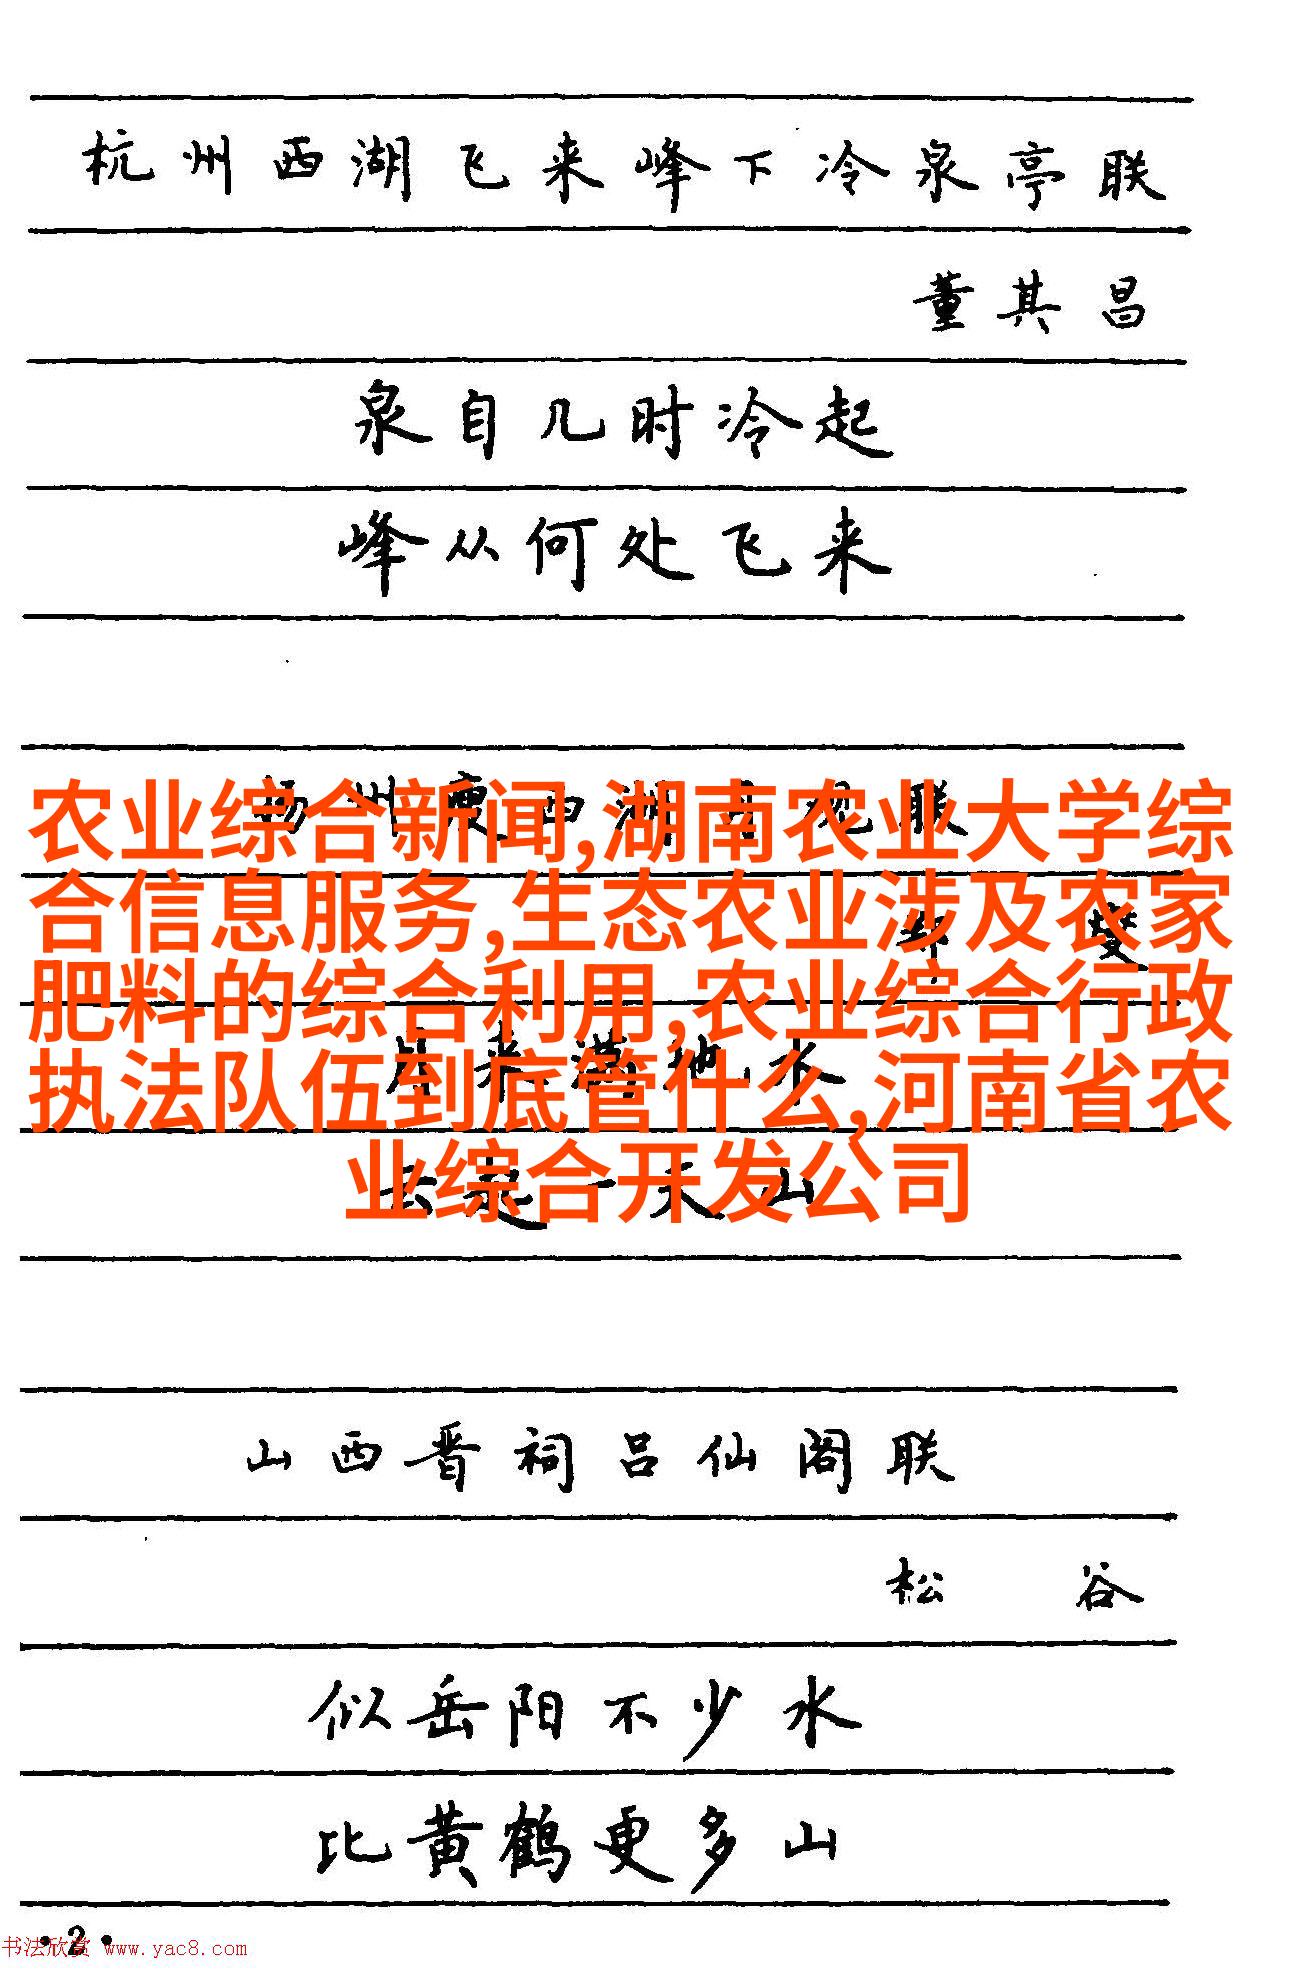 杭州西湖飞来峰下冷泉亭联
董其昌
泉自几时冷起
峰从何处飞来
农业综合新闻,湖南农业大学综
合信息服务,生态农业涉及农家
肥料的综合利用,农业综合行政
执法队伍到底管什么,河南省农
业综合开发公司
山西晋祠吕仙阁联
松谷
似岳阳不少水
比黄鹤更多山
·2·
书法欣赏 www.yac8.com